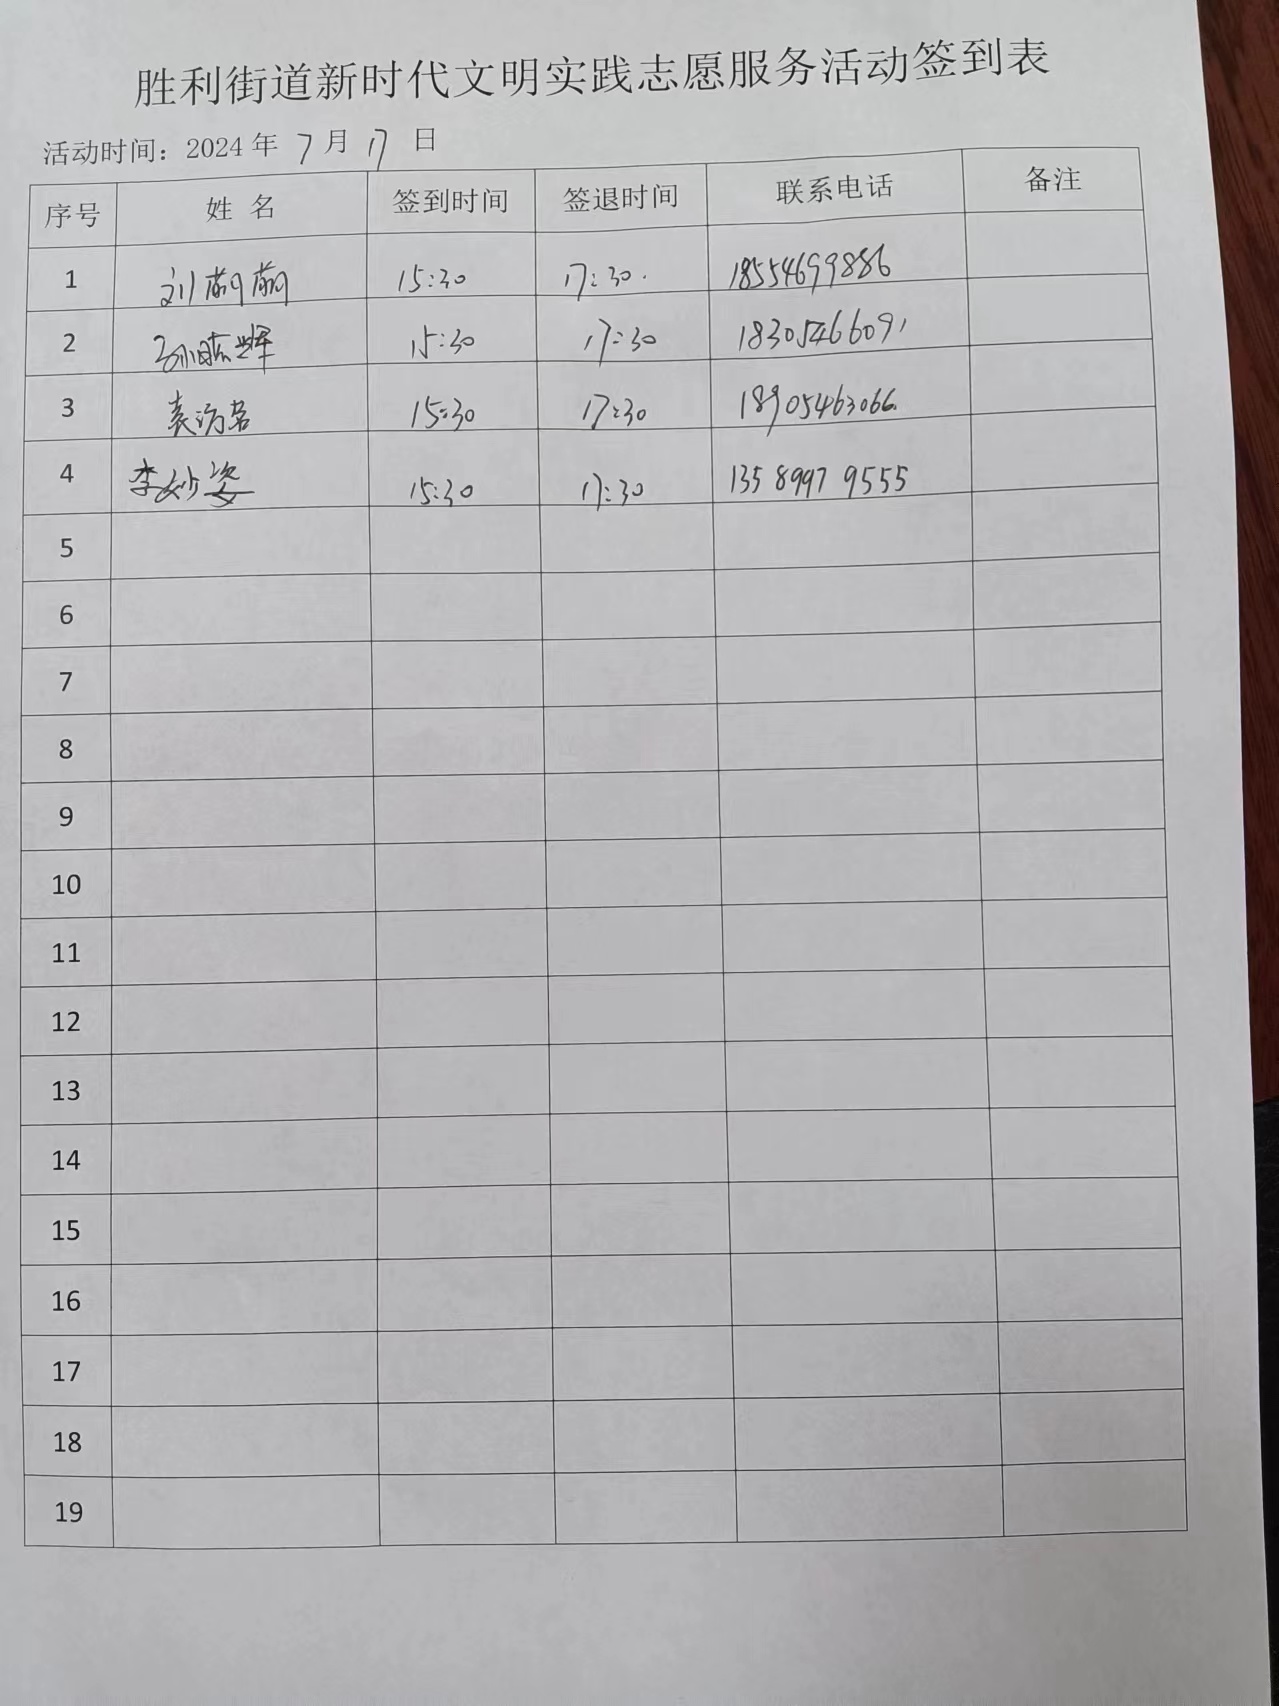 胜利街道新时代文明实践志愿服务活动签到表
活动时间：2024 年 7 月 17 日
序号 姓 名 签到时间 签退时间 联系电话 备注
1 刘 15:30 17:30. 18554699886
2 15:30 17:30 18305466091
3 袁 15:30 17:30 18905463066.
4 李妙姿 15:30 17:30 135 8997 9555
5
6
7
8
9
10
11
12
13
14
15
16
17
18
19